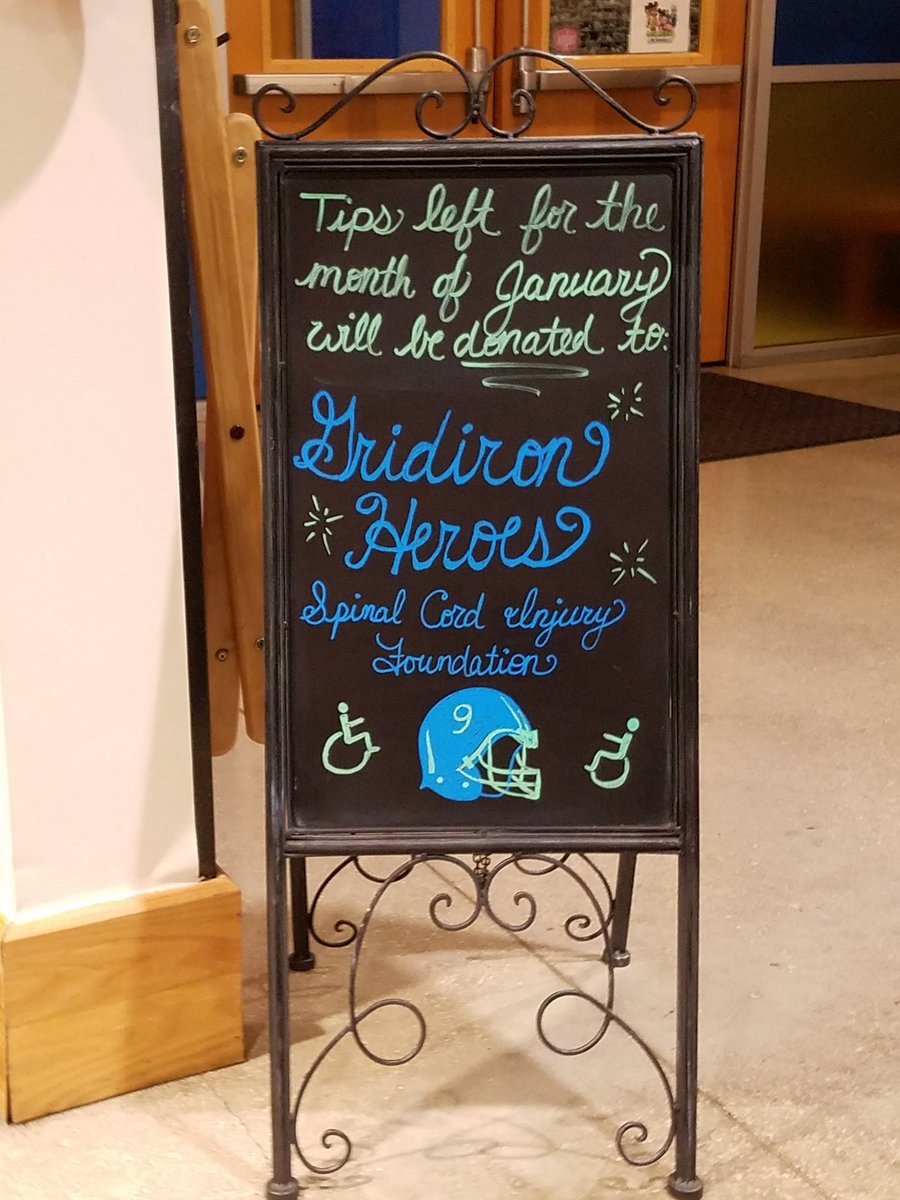 Tips left for the
month of January
will be donated to:
Gridiron
Heroes
Spinal Cord Injury
Foundation
9